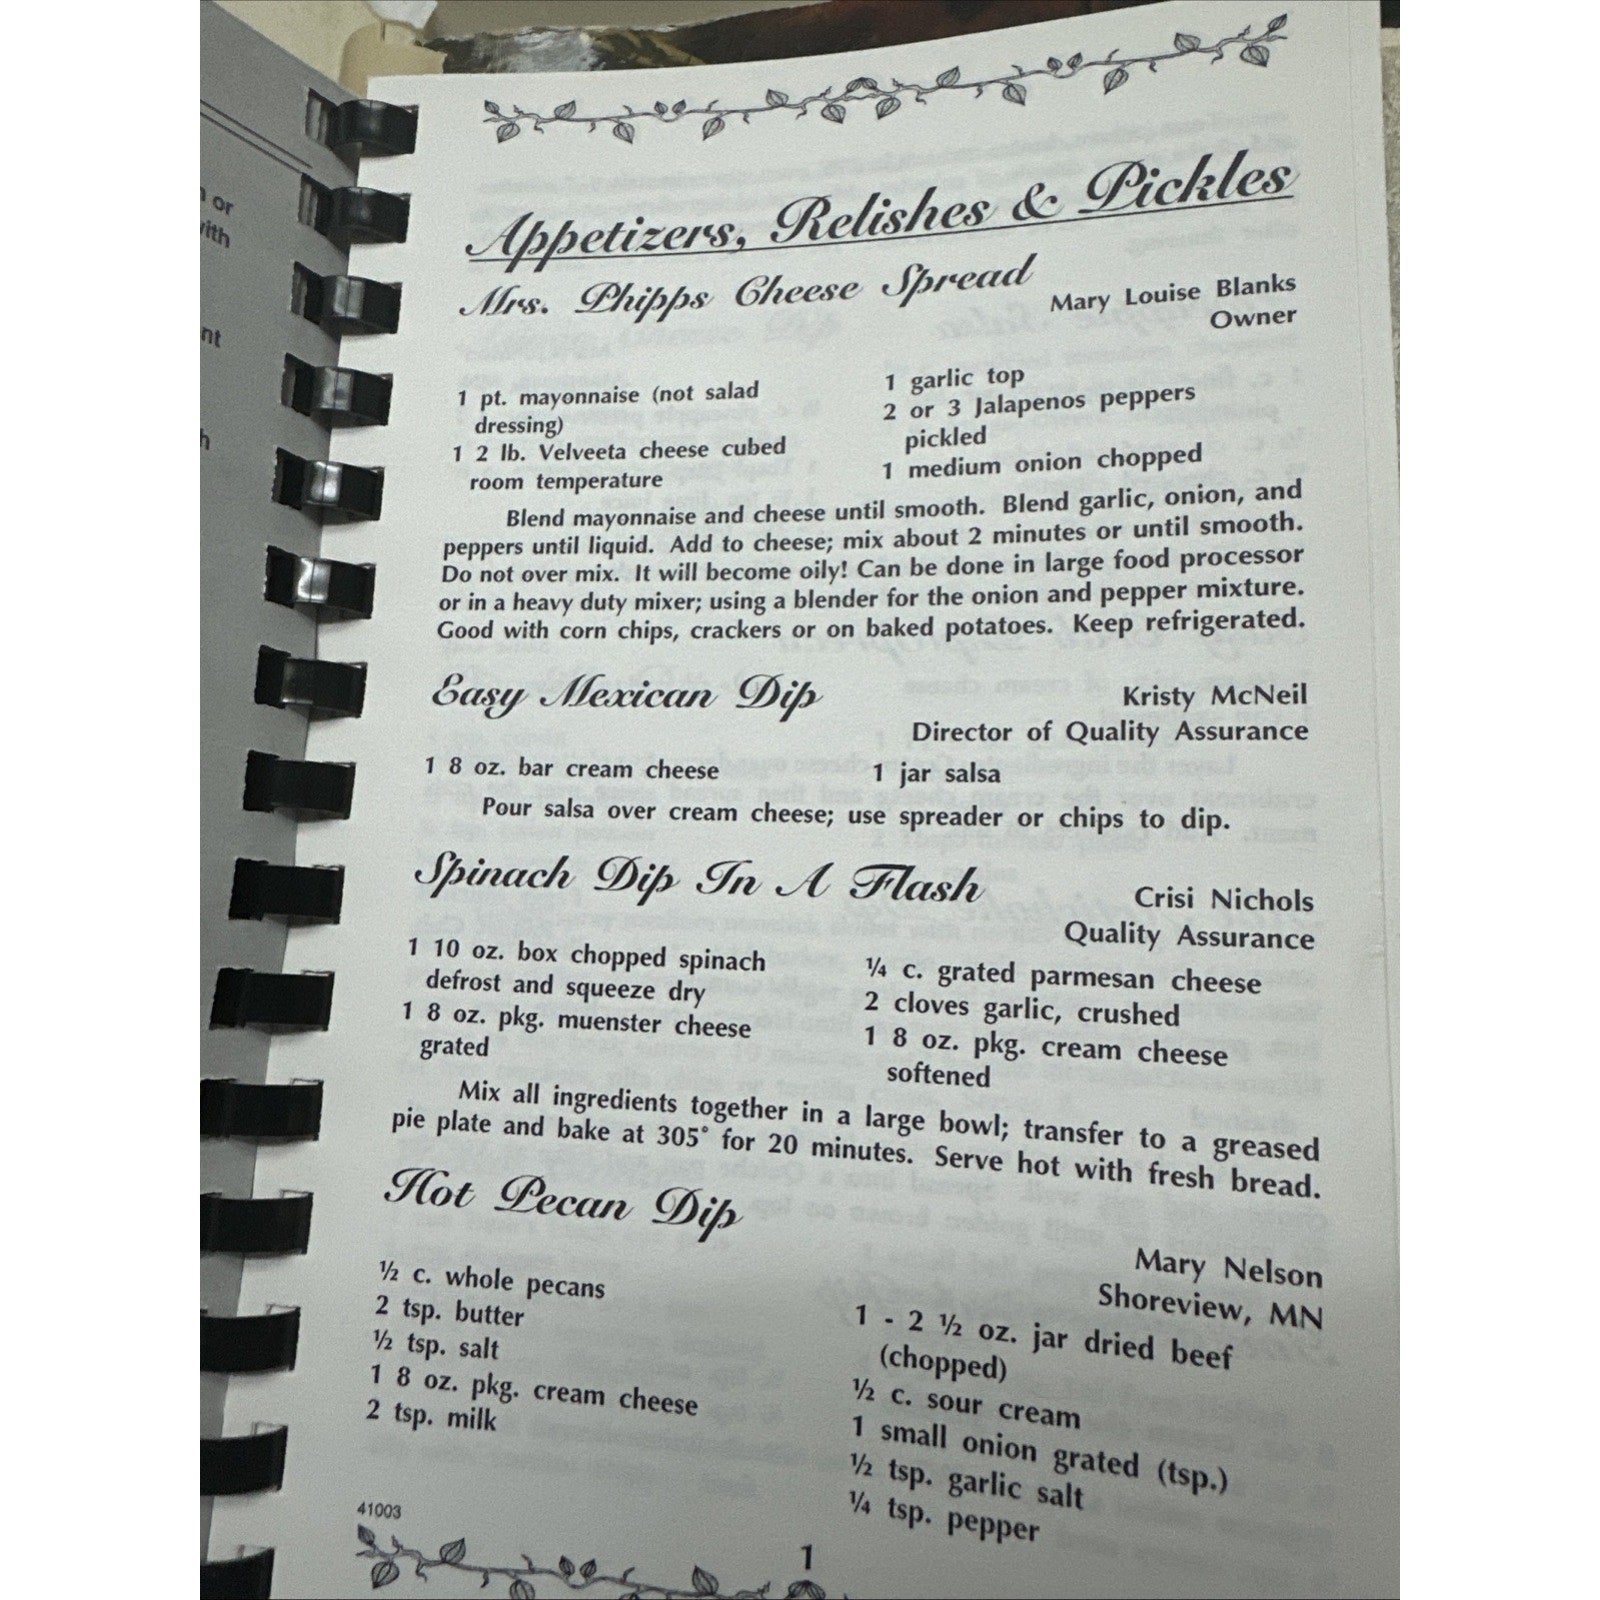 or
with
nt
h
Appetizers, Relishes & Pickles
Mrs. Phipps Cheese Spread
Mary Louise Blanks
Owner
1 pt. mayonnaise (not salad
dressing)
1 2 lb. Velveeta cheese cubed
room temperature
1 garlic top
2 or 3 Jalapenos peppers
pickled
1 medium onion chopped
Blend mayonnaise and cheese until smooth. Blend garlic, onion, and
peppers until liquid. Add to cheese; mix about 2 minutes or until smooth.
Do not over mix. It will become oily! Can be done in large food processor
or in a heavy duty mixer; using a blender for the onion and pepper mixture.
Good with corn chips, crackers or on baked potatoes. Keep refrigerated.
Easy Mexican Dip
Kristy McNeil
Director of Quality Assurance
1 8 oz. bar cream cheese
1 jar salsa
Pour salsa over cream cheese; use spreader or chips to dip.
Spinach Dip In A Flash
Crisi Nichols
Quality Assurance
1 10 oz. box chopped spinach
defrost and squeeze dry
1 8 oz. pkg. muenster cheese
grated
¼ c. grated parmesan cheese
2 cloves garlic, crushed
1 8 oz. pkg. cream cheese
softened
Mix all ingredients together in a large bowl; transfer to a greased
pie plate and bake at 305° for 20 minutes. Serve hot with fresh bread.
Hot Pecan Dip
Mary Nelson
Shoreview, MN
½ c. whole pecans
2 tsp. butter
½ tsp. salt
1 8 oz. pkg. cream cheese
2 tsp. milk
1 - 2 ½ oz. jar dried beef
(chopped)
½ c. sour cream
1 small onion grated (tsp.)
½ tsp. garlic salt
¼ tsp. pepper
41003
1